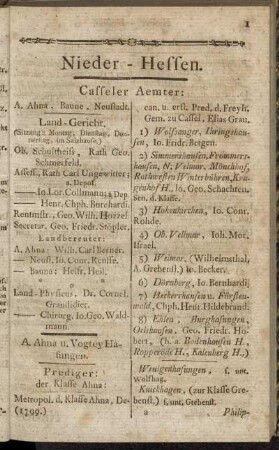 1
Nieder-Hessen.
Casseler Aemter:
A. Ahna, Baune, Neustadt.
Land-Gericht,
(Sitzung: Montag, Dienstag, Donnerstag, im Salzhause,)
Ob. Schultheiß, Rath Geo. Schmerfeld.
Assess. Rath Carl Ungewitter
a. Depos.
— Io. Lor. Collmann, a Dep.
— Henr. Chph. Burchardi.
Rentmstr., Geo. Wilh. Hotzel.
Secretar, Geo. Friedr. Stöpler.
Landbereuter:
A. Ahna: Wilh. Carl Berner.
— Neust. Io. Conr. Reusse.
— Bauna: Helfr. Heil.
Land-Physicus, Dr. Cornel. Grandidier.
— Chirurg. Io. Geo. Waldmann.
A. Ahna u. Vogtey Hasungen.
Prediger:
der Klasse Ahna:
Metropol. d. Klasse Ahna, De-
(1799.)
can. u. erst. Pred. d. Freyh.
Gem. zu Cassel, Elias Grau.
1) Wolfsanger, Ihringshausen, Io. Fridr. Betgen.
2) Simmershausen, Frommershausen, N. Velmar, Mönchhof,
3) Hohenkirchen, Io. Conr. Rohde.
4) Ob. Velmar, Ioh. Mor. Israel.
5) Weimar, (Wilhelmsthal, A. Grebenst.) Io. Becker.
6) Dörenberg, Io. Bernhardi.
7) Heckershausen u. Fürstenwald, Chph. Henr. Hildebrand.
8) Ehlen, Burghasungen, Oelshausen, Geo. Friedr. Hobert, (b. a. Bodenhausen H., Ropperode H., Kalenberg H.,)
Wenigenhasungen, s. unt. Wolfhag.
Knickhagen, (zur Klasse Grebenst.) s. unt. Grebenst.
a
Philip-